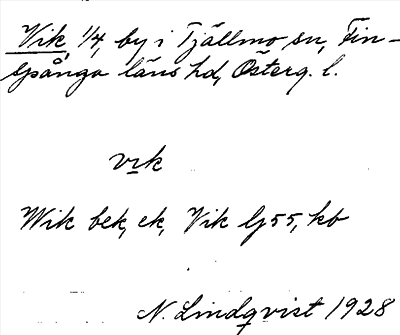 Vik, 1/4, by i Tjällmo sn, Fin-
spånga läns hd, Österg. l.
vik
Wik bek, ek, Vik lj 55, kb
N. Lindqvist 1928